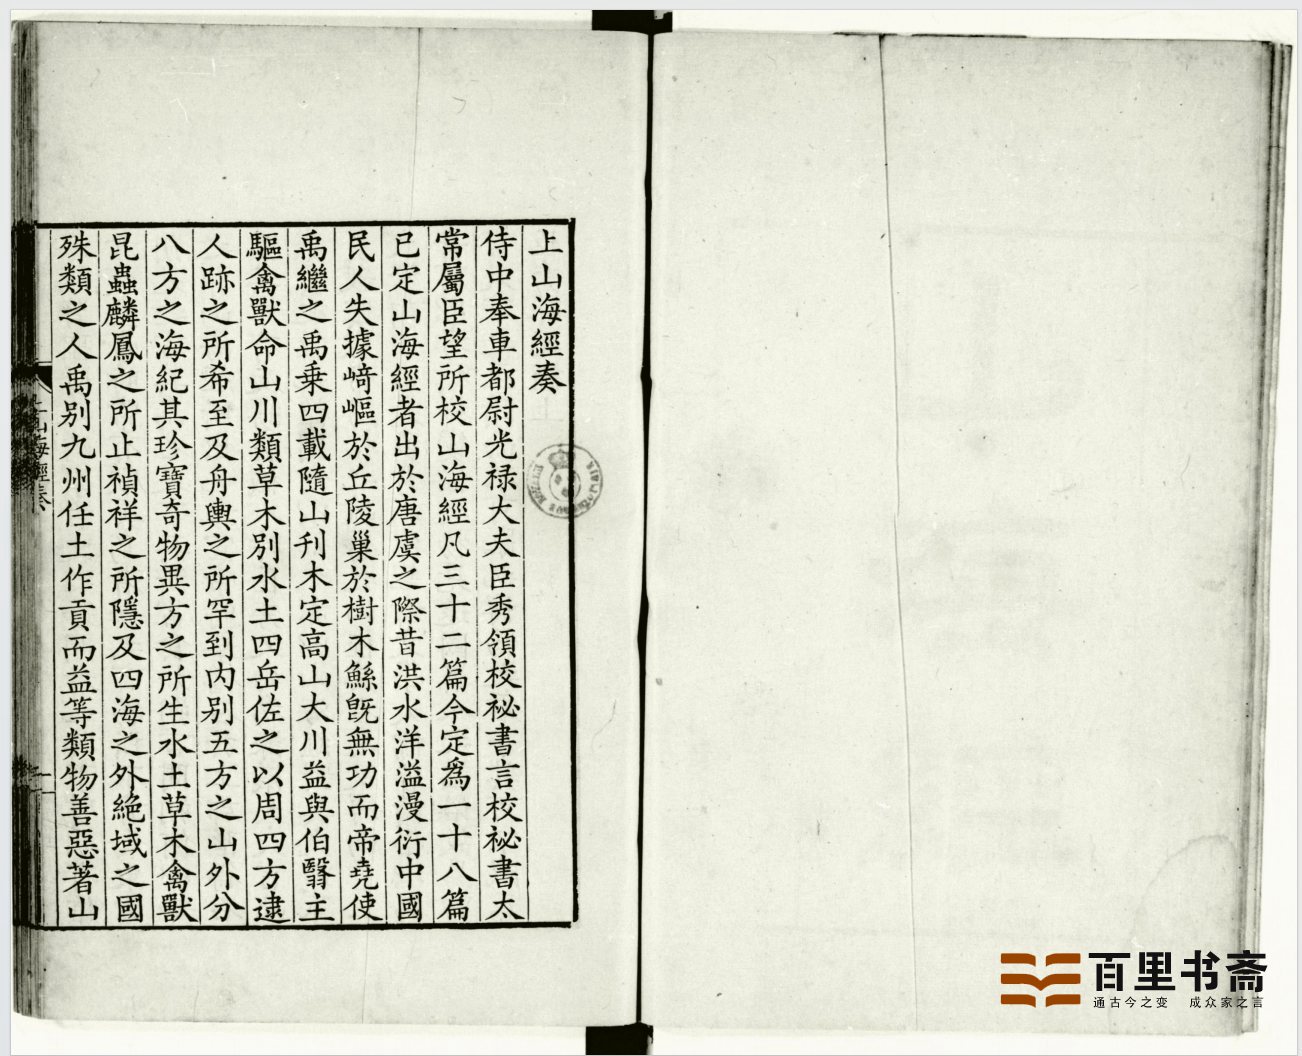 上山海經奏
侍中奉車都尉光禄大夫臣秀領校祕書言校祕書太
常屬臣望所校山海經凡三十二篇今定爲一十八篇
已定山海經者出於唐虞之際昔洪水洋溢漫衍中國
民人失據崎嶇於丘陵巢於樹木鯀旣無功而帝堯使
禹繼之禹乗四載隨山刋木定高山大川益與伯翳主
驅禽獸命山川類草木別水土四岳佐之以周四方逮
人跡之所希至及舟輿之所罕到内別五方之山外分
八方之海紀其珍寶奇物異方之所生水土草木禽獸
昆蟲麟鳳之所止禎祥之所隱及四海之外絶域之國
殊類之人禹別九州任土作貢而益等類物善惡著山
山海經奏
一
百里书斋
通古今之变 成众家之言